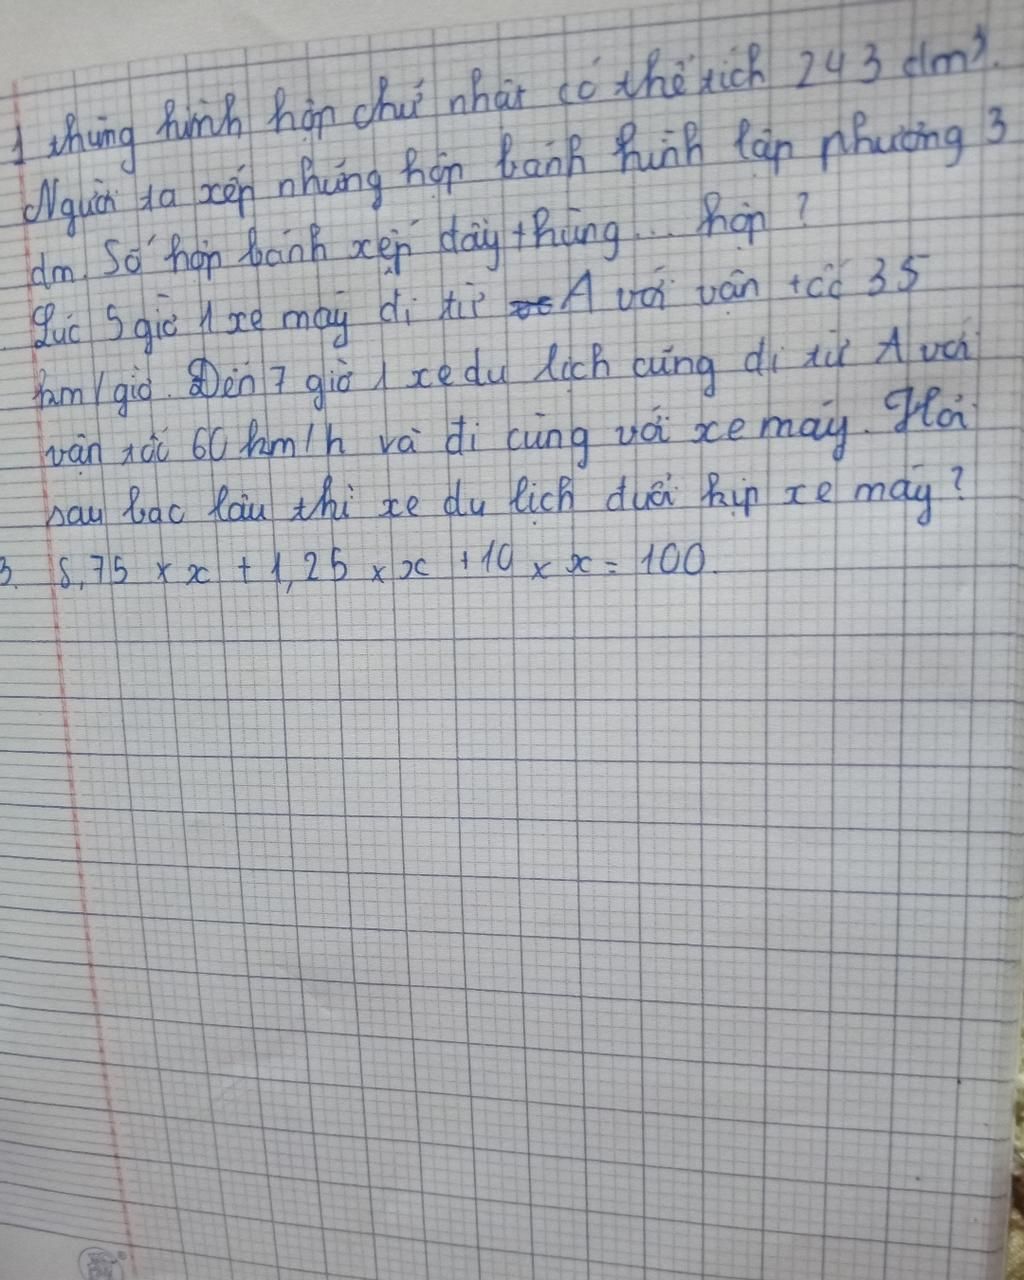 1 thùng hình hộp chữ nhật có thể tích 243 dm³.
Người ta xếp những hộp bánh hình lập phương 3
dm. Số hộp bánh xếp đầy thùng... hộp?
Lúc 5 giờ 1 xe máy đi từ A với vận tốc 35
km/giờ. Đến 7 giờ 1 xe du lịch cũng đi từ A với
vận tốc 60 km/h và đi cùng với xe máy. Hỏi
sau bac lâu thì xe du lịch đuổi kịp xe máy?
3. 8,75 × x + 1,25 × x + 10 × x = 100.